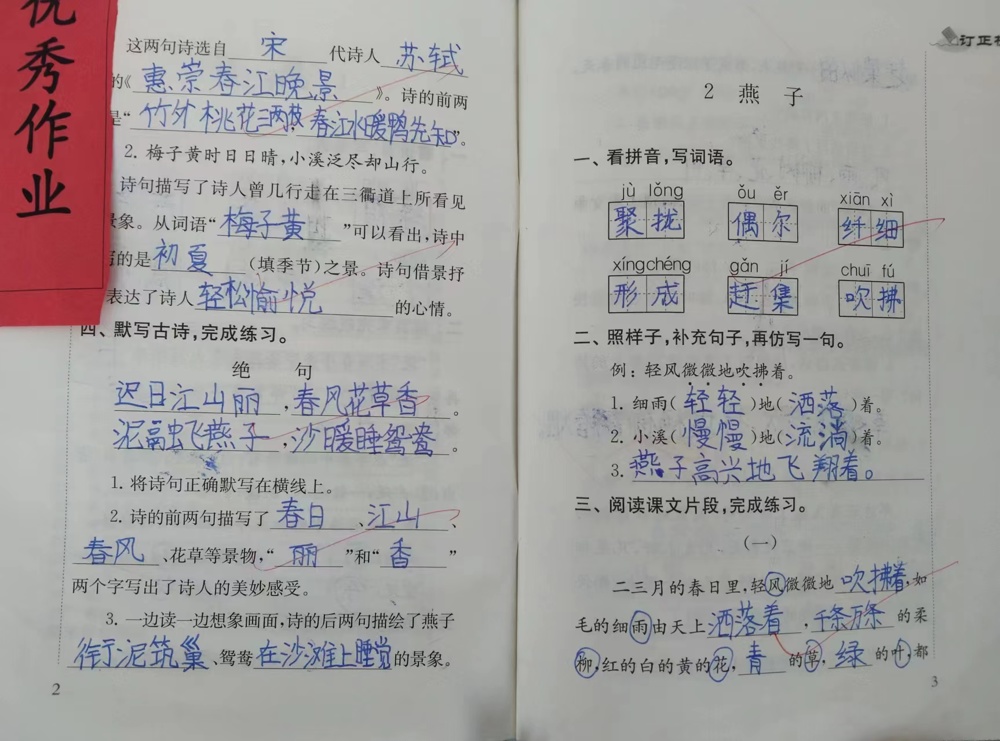 优秀作业
这两句诗选自 宋 代诗人 苏轼
的《惠崇春江晚景》。诗的前两
是“竹外桃花三两枝 春江水暖鸭先知”。
2. 梅子黄时日日晴,小溪泛尽却山行。
诗句描写了诗人曾几行走在三衢道上所看见
景象。从词语“梅子黄”可以看出,诗中
写的是 初夏 (填季节)之景。诗句借景抒
表达了诗人 轻松愉悦 的心情。
四、默写古诗,完成练习。
绝 句
迟日江山丽,春风花草香。
泥融飞燕子,沙暖睡鸳鸯。
1. 将诗句正确默写在横线上。
2. 诗的前两句描写了 春日、江山、
春风、花草等景物,“丽”和“香”
两个字写出了诗人的美妙感受。
3. 一边读一边想象画面,诗的后两句描绘了燕子
衔泥筑巢、鸳鸯 在沙滩上睡觉 的景象。
2
订正栏
2 燕 子
一、看拼音,写词语。
jù lǒng ǒu ěr xiān xì
聚拢 偶尔 纤细
xíngchéng gǎn jí chuī fú
形成 赶集 吹拂
二、照样子,补充句子,再仿写一句。
例:轻风微微地吹拂着。
1. 细雨(轻轻)地(洒落)着。
2. 小溪(慢慢)地(流淌)着。
3. 燕子高兴地飞翔着。
三、阅读课文片段,完成练习。
(一)
二三月的春日里,轻风微微地 吹拂着,如
毛的细雨由天上 洒落着,千条万条 的柔
柳,红的白的黄的花,青 的草,绿 的叶,都
3